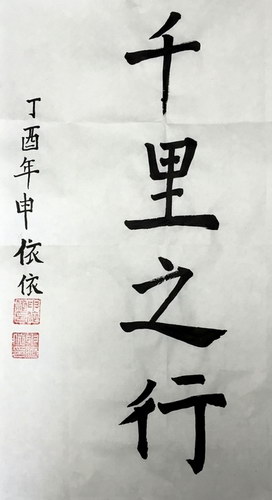 千里之行
丁酉年申依依